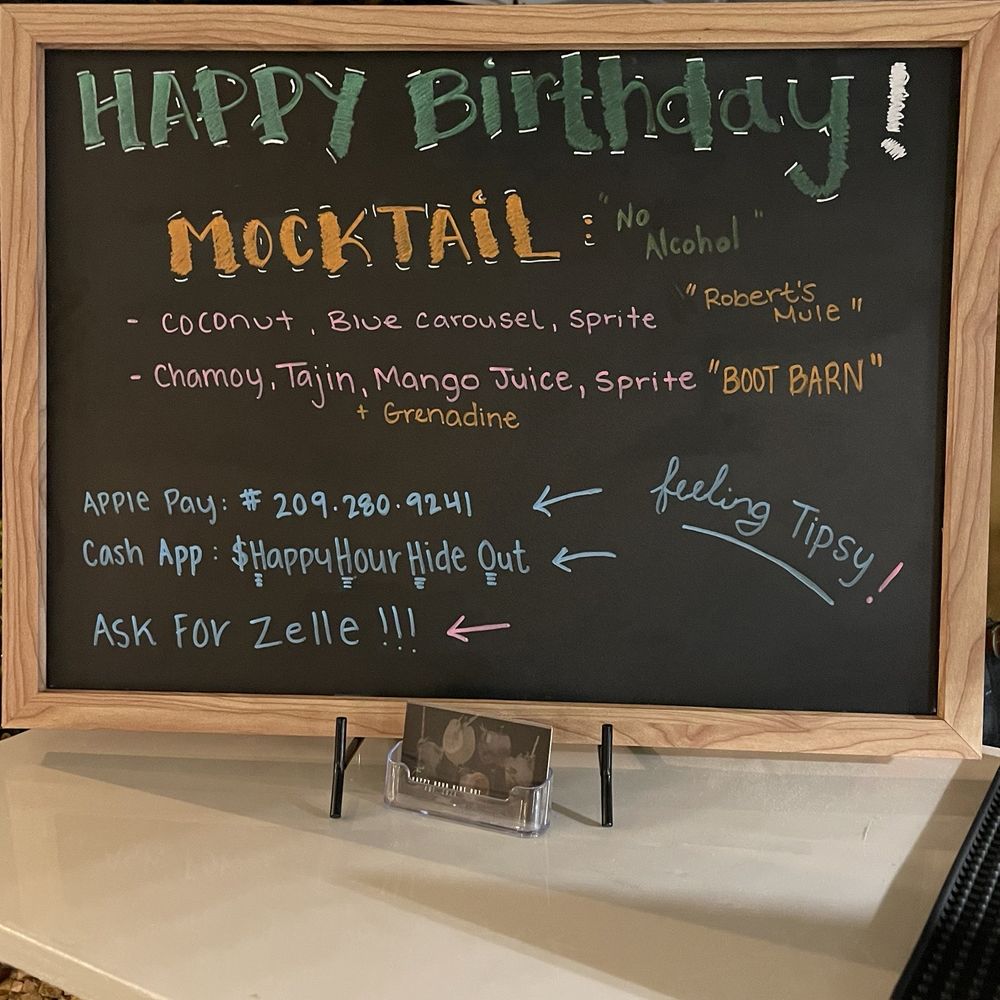 HAPPY Birthday!
MOCKTAIL : "No Alcohol"
- Coconut, Blue Carousel, Sprite "Robert's Mule"
- Chamoy, Tajin, Mango Juice, Sprite "BOOT BARN"
+ Grenadine
Apple Pay: # 209.280.9241 ←
Cash App: $HappyHourHide Out ←
Ask For Zelle !!! ←
feeling Tipsy!
HAPPY HOUR HIDE OUT